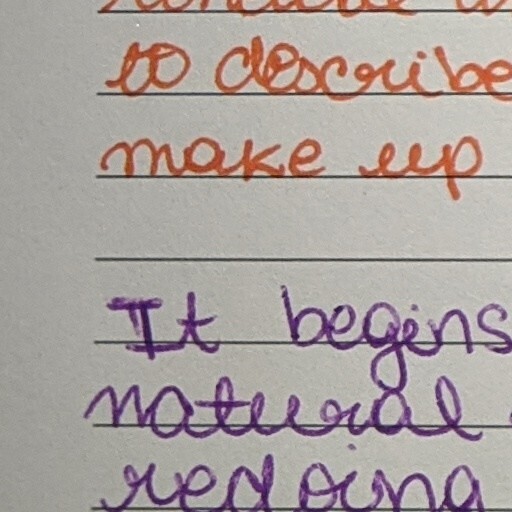 to describe
make up
It begins
natural
redoing